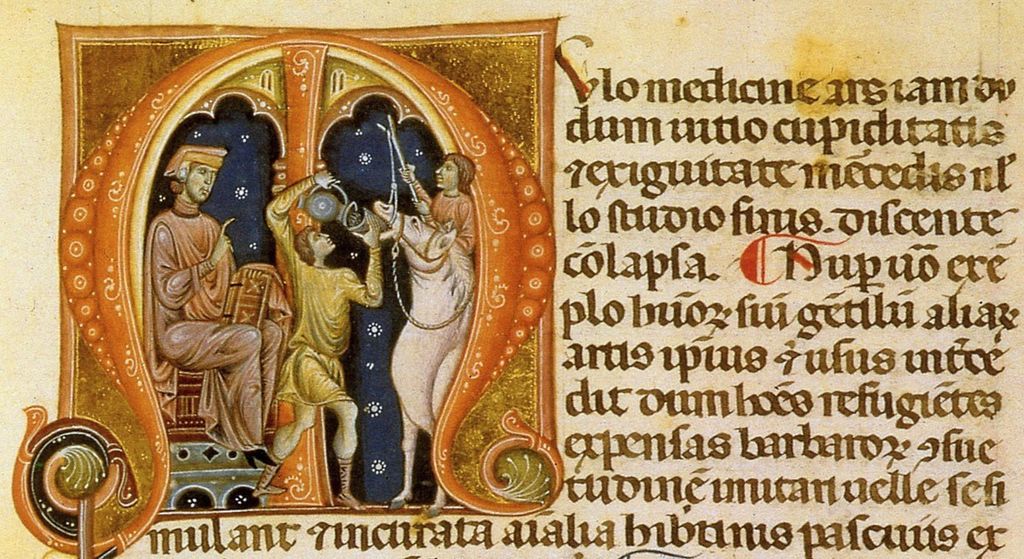 M Vlo medicine ars iam du
dum initio cupiditatis
⁊ exiguitate mēcedis nl̄
lo studio sinis. discente
cōlapsa. Nup uō exē
plo hūoꝝ siū gētiū aliaꝝ
artis ipius ⁊ usus intcē
dit dum hoēs refugiētes
expensas barbaroꝝ ꝯsue
tudinē imitari uelle sesi
mulant ⁊ incurata aialia hib̄inis pascuis et